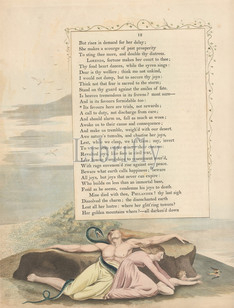 12
But rises in demand for her delay;
She makes a scourge of past prosperity
To sting thee more, and double thy distress.
LORENZO, fortune makes her court to thee;
Thy fond heart dances, while the syren sings:
Dear is thy welfare; think me not unkind,
I would not damp, but to secure thy joys:
Think not that fear is sacred to the storm:
Stand on thy guard against the smiles of fate.
Is heaven tremendous in its frowns? most sure—
And in its favours formidable too:
* Its favours here are trials, not rewards;
A call to duty, not discharge from care;
And should alarm us, full as much as woes;
Awake us to their cause and consequence;
And make us tremble, weigh'd with our desert
Awe nature's tumults, and chastise her joys,
Lest, while we clasp, we kill them; nay, invert
To worse than simple misery their charms:
Revolted joys, like foes in civil war,
Like bosom friendships to resentment sour'd,
With rage envenom'd rise against our peace.
Beware what earth calls happiness; beware
All joys, but joys that never can expire:
Who builds on less than an immortal base,
Fond as he seems, condemns his joys to death.
Mine died with thee, PHILANDER! thy last sigh
Dissolved the charm; the disenchanted earth
Lost all her lustre: where her glitt'ring towers?
Her golden mountains where?—all darken'd down